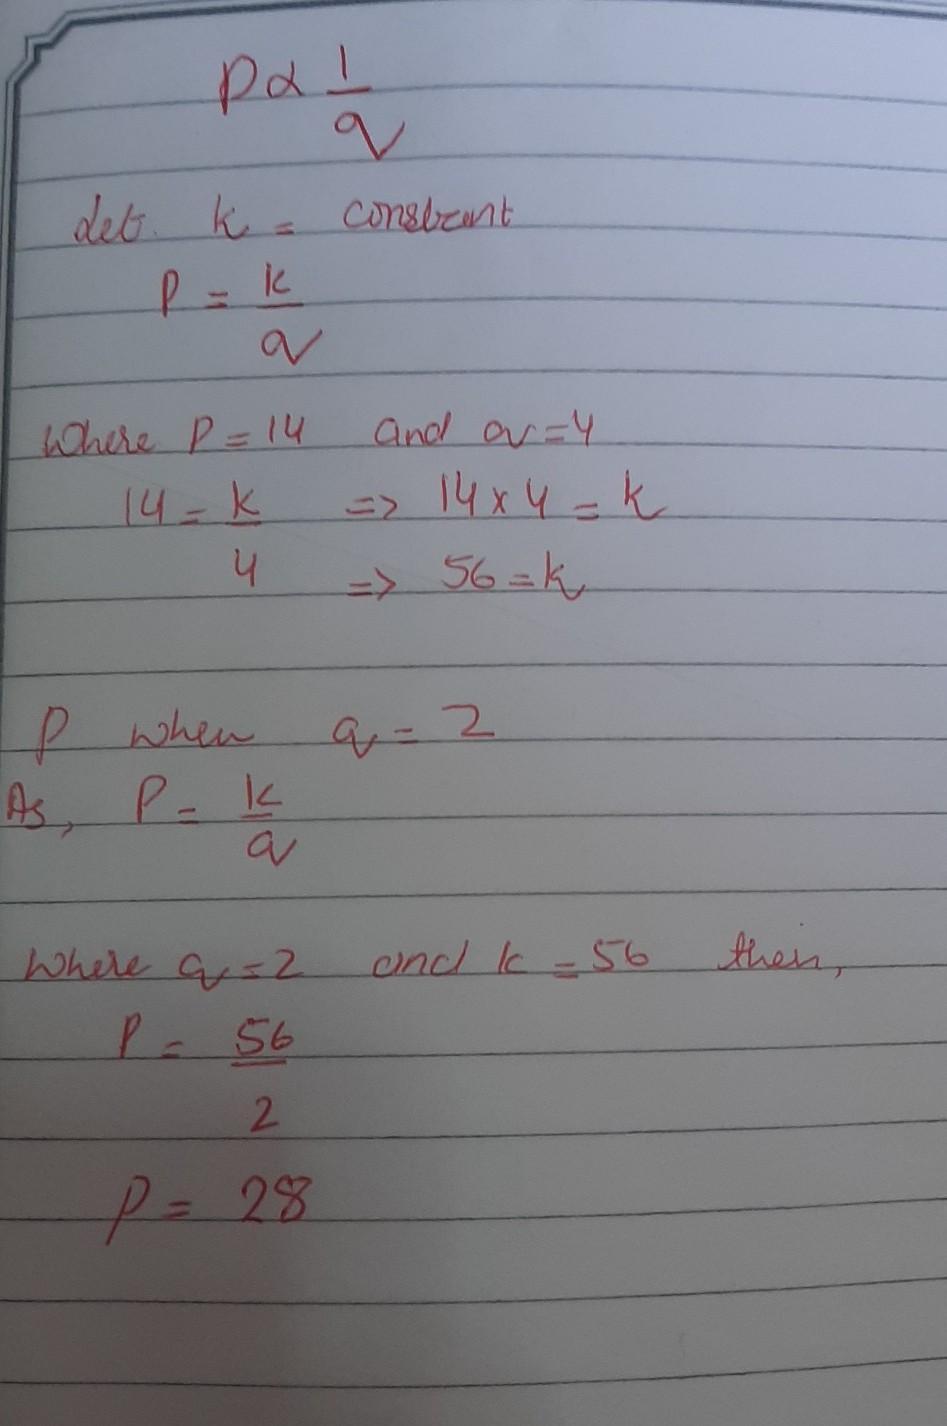 P ∝ 1/q
Let. k = constant
P = k/q
Where P = 14 and q = 4
14 = k/4 => 14 x 4 = k
=> 56 = k
P when q = 2
As, P = k/q
Where q = 2 and k = 56 then,
P = 56/2
P = 28